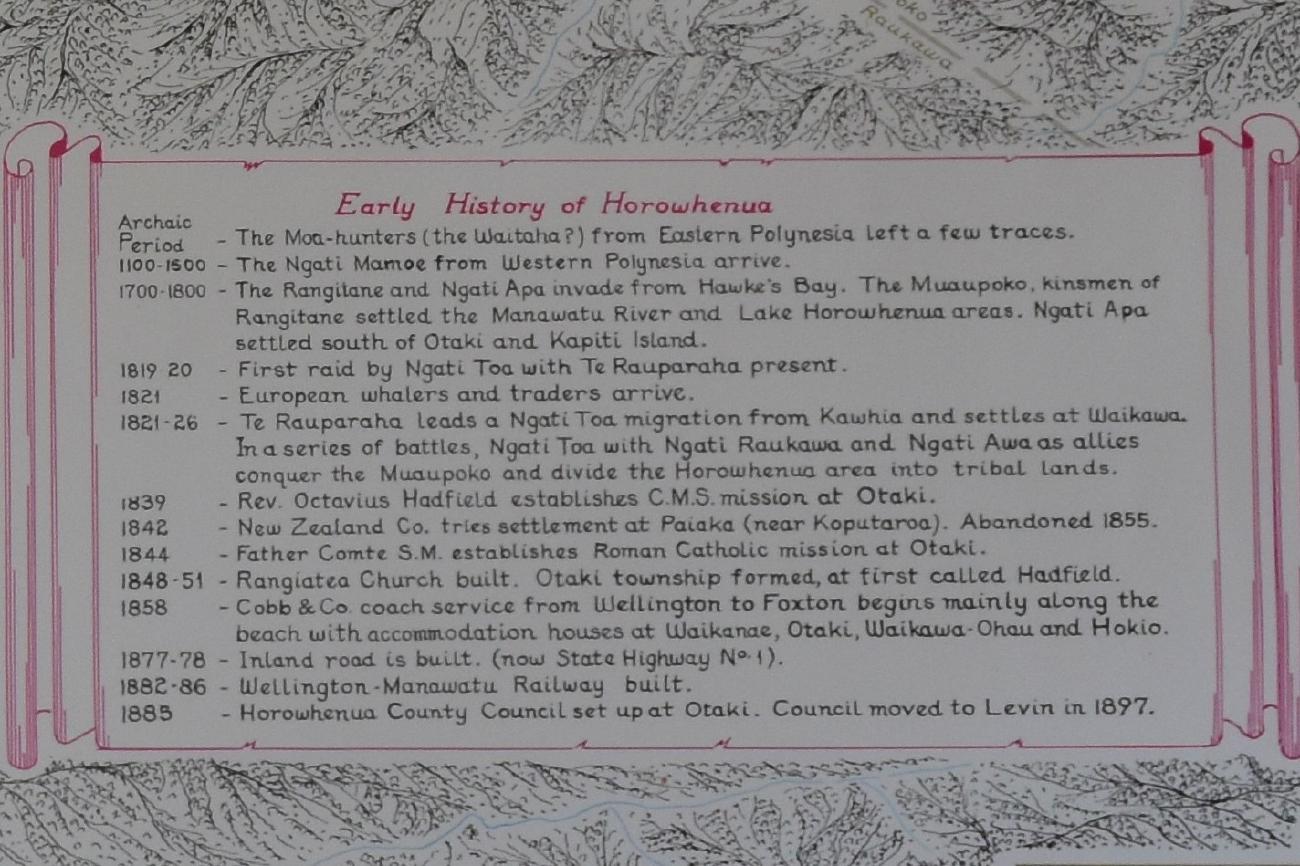 oko
Raukawa
Early History of Horowhenua
Archaic
Period - The Moa-hunters (the Waitaha?) from Eastern Polynesia left a few traces.
1100-1500 - The Ngati Mamoe from Western Polynesia arrive.
1700-1800 - The Rangitane and Ngati Apa invade from Hawke's Bay. The Muaupoko, kinsmen of
Rangitane settled the Manawatu River and Lake Horowhenua areas. Ngati Apa
settled south of Otaki and Kapiti Island.
1819 20 - First raid by Ngati Toa with Te Rauparaha present.
1821 - European whalers and traders arrive.
1821-26 - Te Rauparaha leads a Ngati Toa migration from Kawhia and settles at Waikawa.
In a series of battles, Ngati Toa with Ngati Raukawa and Ngati Awa as allies
conquer the Muaupoko and divide the Horowhenua area into tribal lands.
1839 - Rev. Octavius Hadfield establishes C.M.S. mission at Otaki.
1842 - New Zealand Co. tries settlement at Paiaka (near Koputaroa). Abandoned 1855.
1844 - Father Comte S.M. establishes Roman Catholic mission at Otaki.
1848-51 - Rangiatea Church built. Otaki township formed, at first called Hadfield.
1858 - Cobb & Co. coach service from Wellington to Foxton begins mainly along the
beach with accommodation houses at Waikanae, Otaki, Waikawa-Ohau and Hokio.
1877-78 - Inland road is built. (now State Highway No. 1).
1882-86 - Wellington-Manawatu Railway built.
1885 - Horowhenua County Council set up at Otaki. Council moved to Levin in 1897.